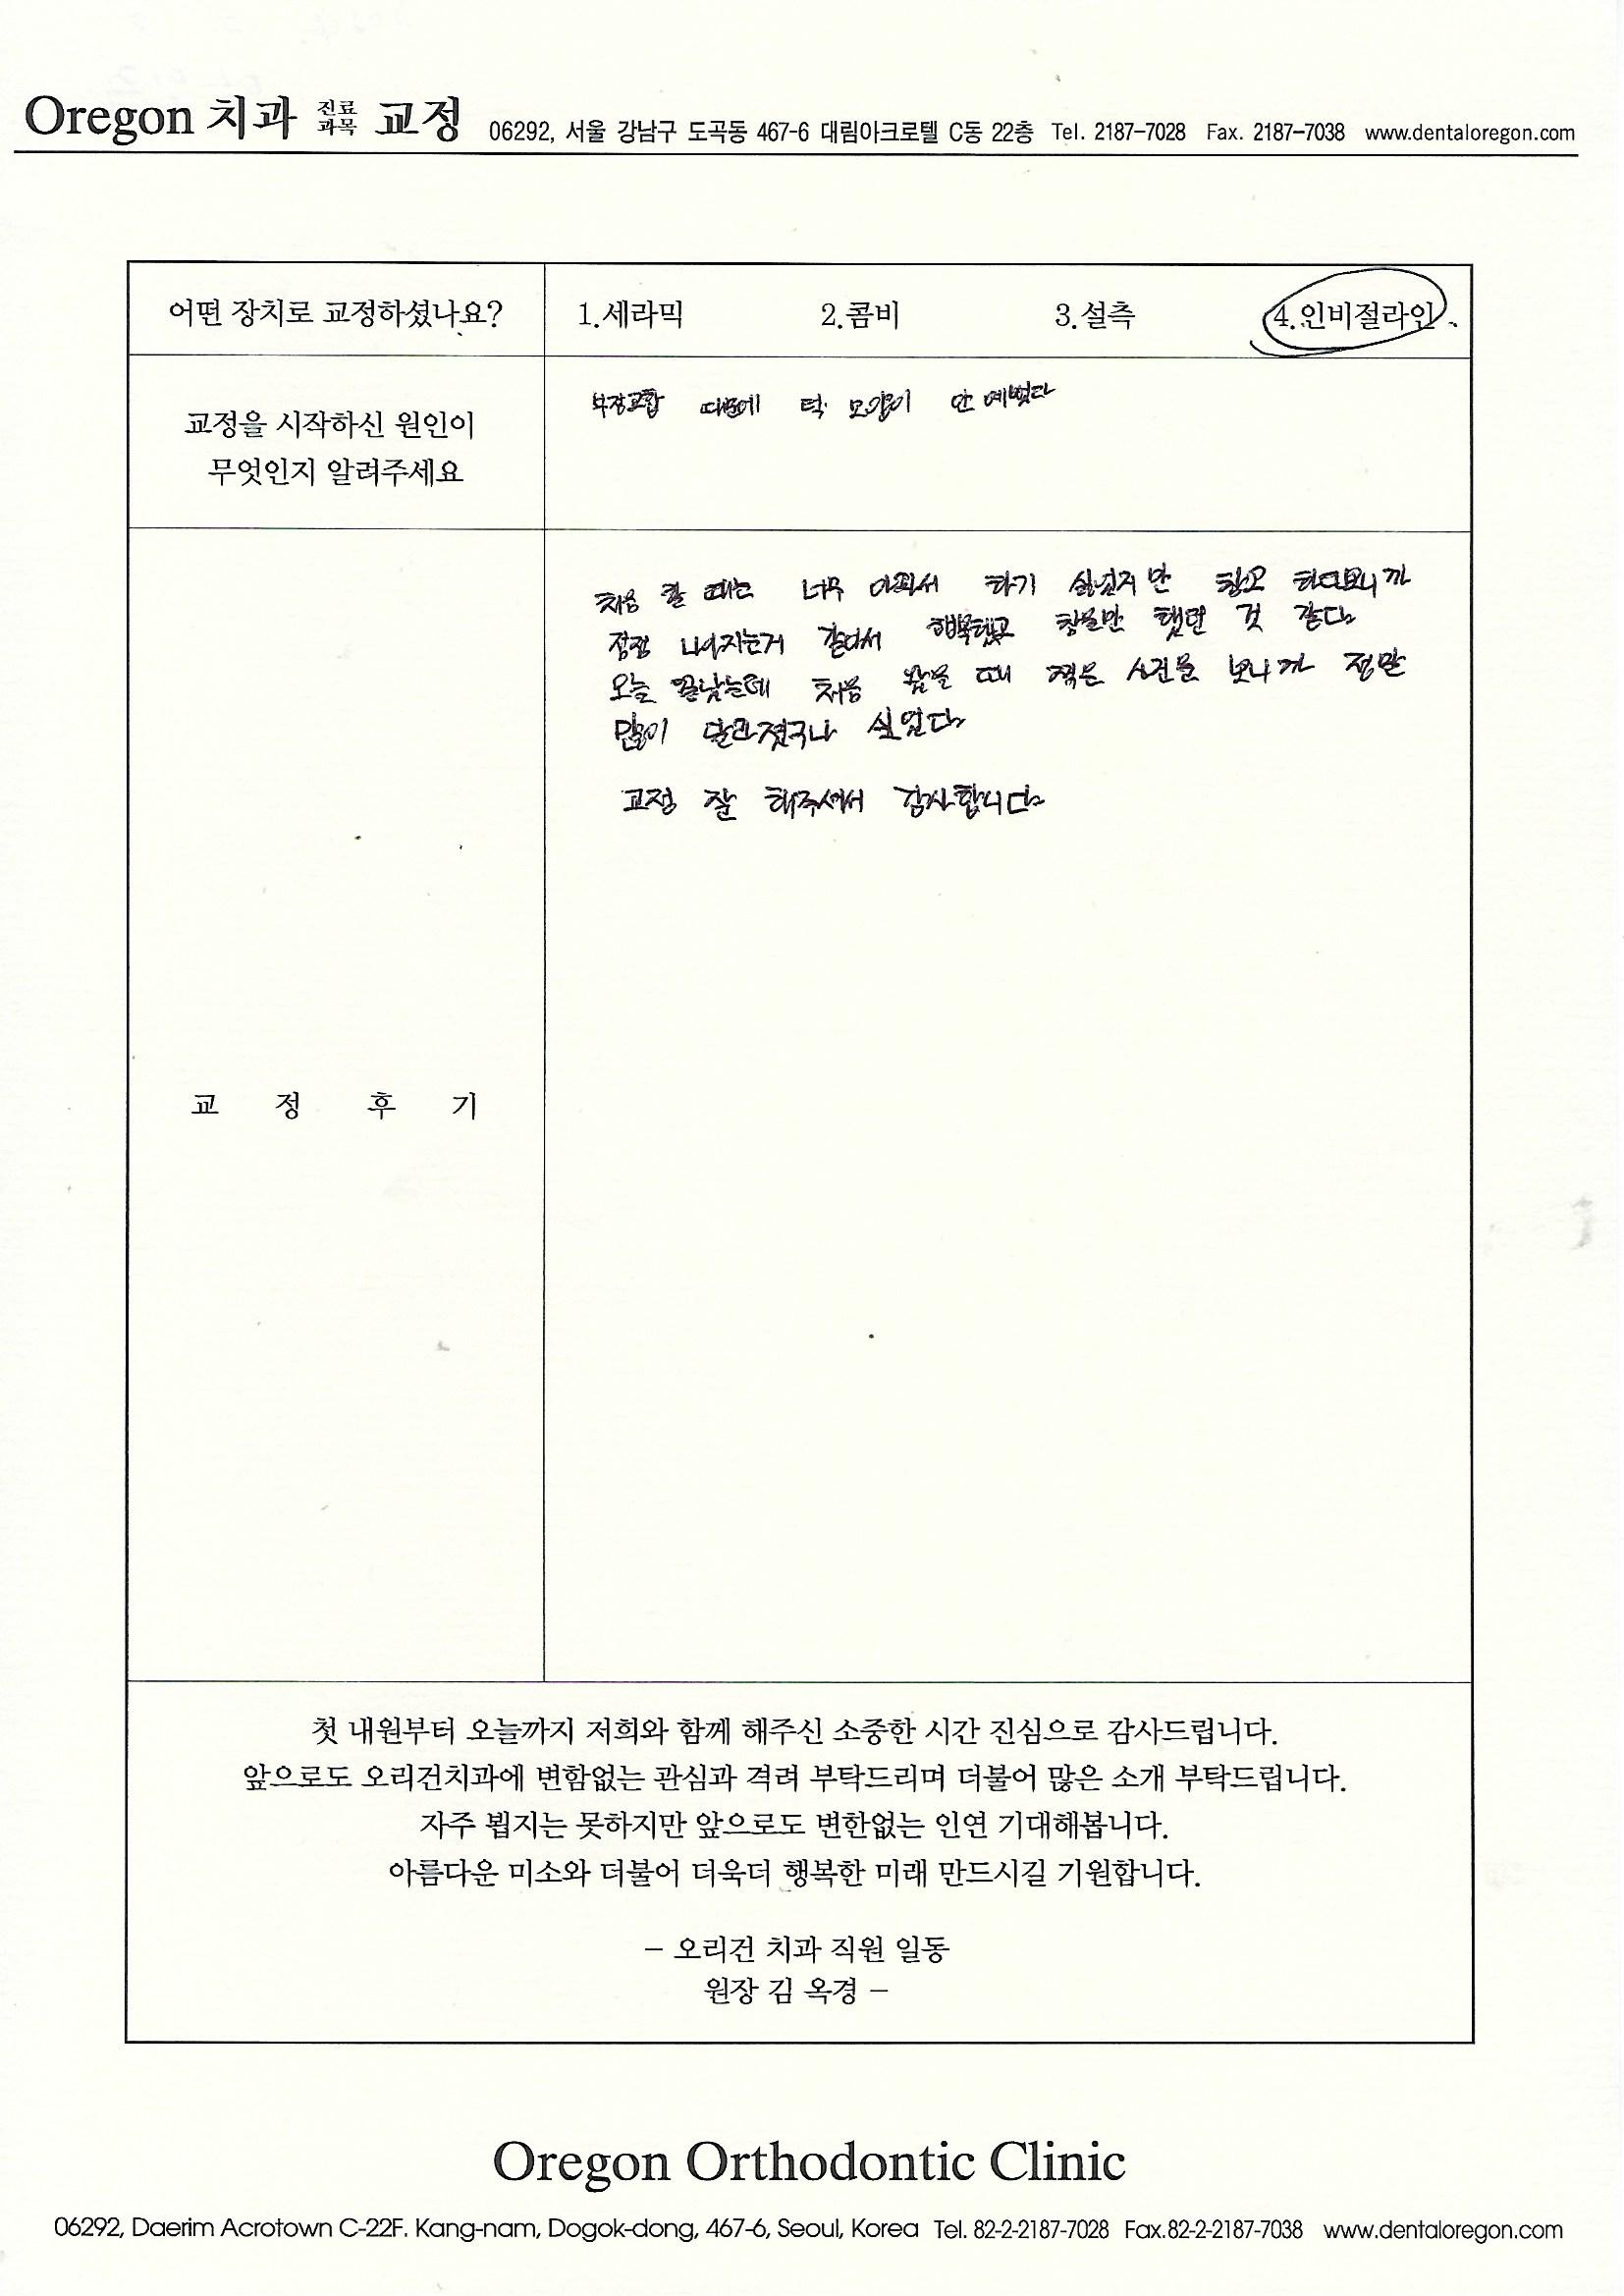 Oregon 치과 진료과목 교정 06292, 서울 강남구 도곡동 467-6 대림아크로텔 C동 22층 Tel. 2187-7028 Fax. 2187-7038 www.dentaloregon.com
어떤 장치로 교정하셨나요? 1.세라믹 2.콤비 3.설측 4.인비절라인
교정을 시작하신 원인이
무엇인지 알려주세요
부정교합 때문에 턱 모양이 안 예뻤다
처음 할 때는 너무 아파서 하기 싫었지만 참고 하다보니까
점점 나아지는거 같아서 행복했고 잘한 것 같다
오늘 끝났는데 처음 왔을 때 찍은 사진을 보니까 정말
많이 달라졌구나 싶었다
교정 잘 해주셔서 감사합니다
교 정 후 기
첫 내원부터 오늘까지 저희와 함께 해주신 소중한 시간 진심으로 감사드립니다.
앞으로도 오리건치과에 변함없는 관심과 격려 부탁드리며 더불어 많은 소개 부탁드립니다.
자주 뵙지는 못하지만 앞으로도 변한없는 인연 기대해봅니다.
아름다운 미소와 더불어 더욱더 행복한 미래 만드시길 기원합니다.
– 오리건 치과 직원 일동
원장 김 옥경 –
Oregon Orthodontic Clinic
06292, Daerim Acrotown C-22F. Kang-nam, Dogok-dong, 467-6, Seoul, Korea Tel. 82-2-2187-7028 Fax.82-2-2187-7038 www.dentaloregon.com